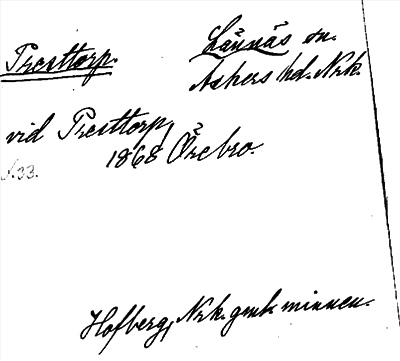 Presttorp.
Lännäs sn.
Askers hd. Nrk.
vid Presttorp,
1868 Örebro.
s. 33.
Hofberg, Nrk. gmk minnen.